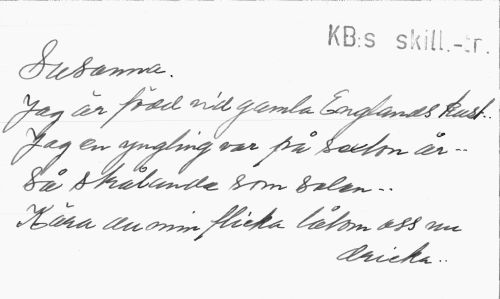 KB:s skill.-tr.
Susanna.
Jag är född vid gamla Englands kust..
Jag en yngling var på sexton år--
Så strålande som solen--
Kära du min flicka låtom oss nu
dricka..